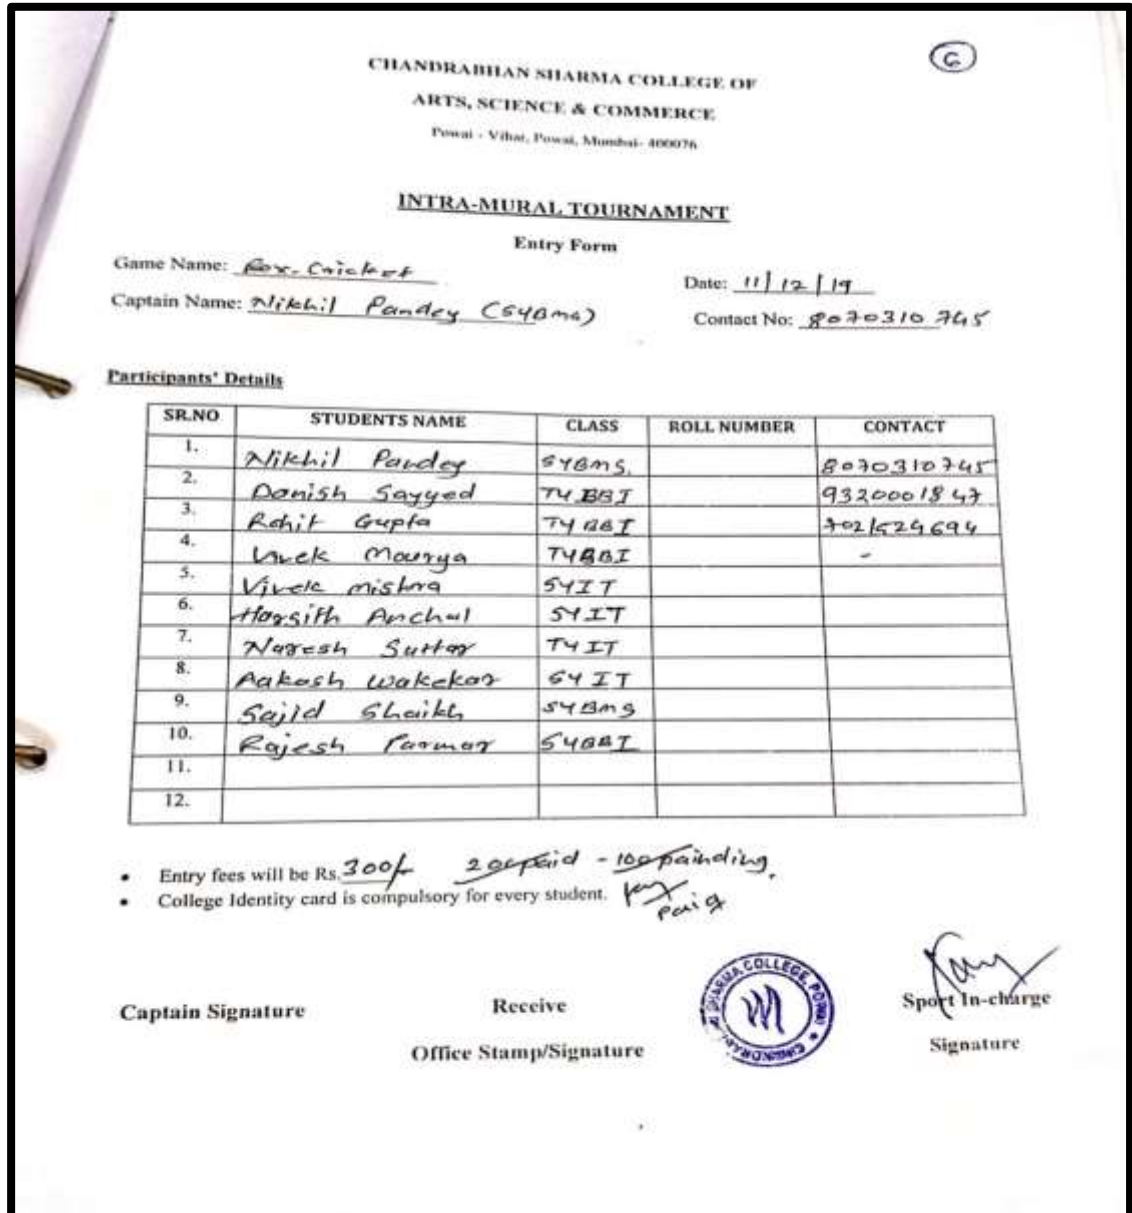 6
CHANDRABHAN SHARMA COLLEGE OF
ARTS, SCIENCE & COMMERCE
Powai - Vihar, Powai, Mumbai- 400076
INTRA-MURAL TOURNAMENT
Entry Form
Game Name: Box-Cricket
Date: 11/12/19
Captain Name: Nikhil Pandey (SYBms)
Contact No: 8070310745
Participants' Details
SR.NO STUDENTS NAME CLASS ROLL NUMBER CONTACT
1. Nikhil Pandey SYBms. 8070310745
2. Danish Sayyed TYBBI 9320001847
3. Rohit Gupta TYBBI 7021524694
4. Vivek Mourya TYBBI -
5. Vivek mishra SYIT
6. Harsith Anchal SYIT
7. Naresh Suttar TYIT
8. Aakash Wakekar SYIT
9. Sajid Shaikh SYBms
10. Rajesh Parmar SYBBI
11.
12.
• Entry fees will be Rs. 300/- 200 paid - 100 painding.
• College Identity card is compulsory for every student. paid
SHARMA COLLEGE, POWAI
Captain Signature
Receive
Sport In-charge
Office Stamp/Signature
Signature